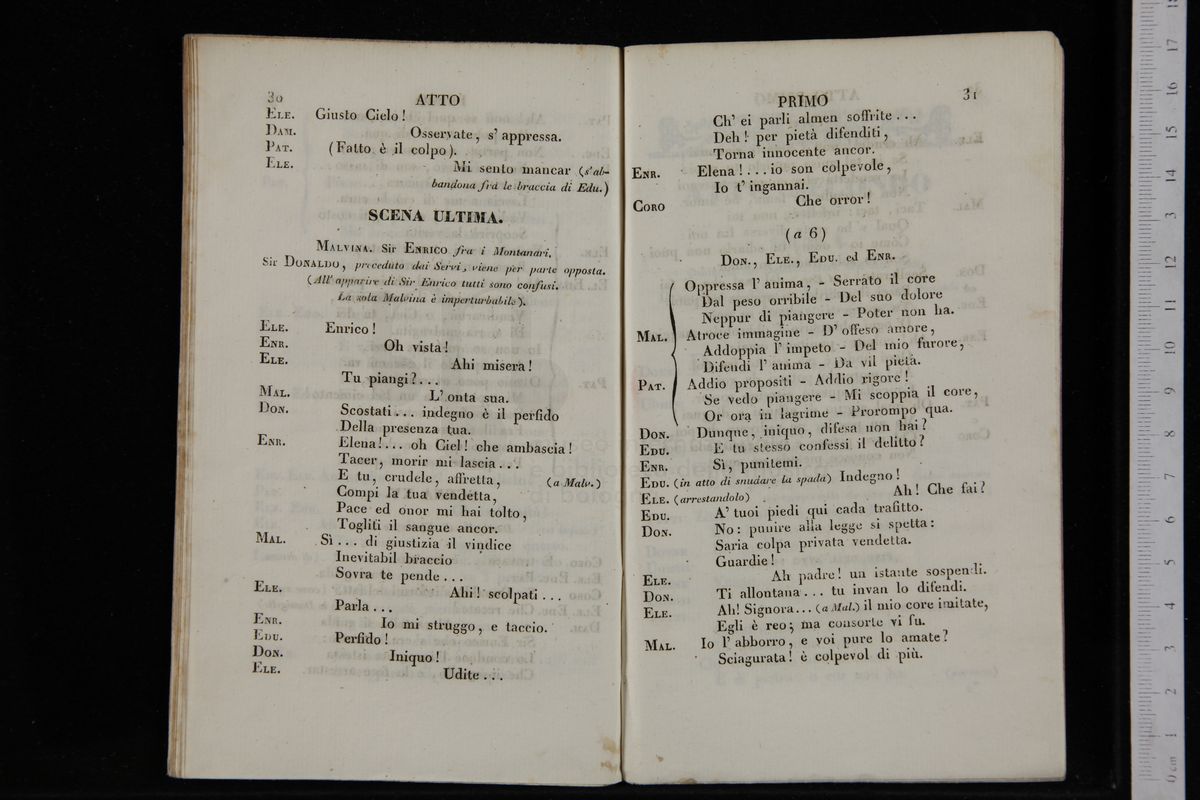 30 ATTO
ELE. Giusto Cielo!
DAM. Osservate, s' appressa.
PAT. (Fatto è il colpo).
ELE. Mi sento mancar (s'ab-
bandona frà le braccia di Edu.)
SCENA ULTIMA.
MALVINA. Sir ENRICO fra i Montanari.
Sir DONALDO, preceduto dai Servi, viene per parte opposta.
(All' apparire di Sir Enrico tutti sono confusi.
La sola Malvina è imperturbabile).
ELE. Enrico!
ENR. Oh vista!
ELE. Ahi misera!
Tu piangi?...
MAL. L' onta sua.
DON. Scostati... indegno è il perfido
Della presenza tua.
ENR. Elena!... oh Ciel! che ambascia!
Tacer, morir mi lascia...
E tu, crudele, affretta, (a Malv.)
Compi la tua vendetta,
Pace ed onor mi hai tolto,
Togliti il sangue ancor.
MAL. Sì... di giustizia il vindice
Inevitabil braccio
Sovra te pende...
ELE. Ahi! scolpati...
Parla...
ENR. Io mi struggo, e taccio.
EDU. Perfido!
DON. Iniquo!
ELE. Udite...
PRIMO 31
Ch' ei parli almen soffrite...
Deh! per pietà difenditi,
Torna innocente ancor.
ENR. Elena!... io son colpevole,
Io t' ingannai.
CORO Che orror!
(a 6)
DON., ELE., EDU. ed ENR.
Oppressa l' anima, - Serrato il core
Dal peso orribile - Del suo dolore
Neppur di piangere - Poter non ha.
MAL. Atroce immagine - D' offeso amore,
Addoppia l' impeto - Del mio furore,
Difendi l' anima - Da vil pietà.
PAT. Addio propositi - Addio rigore!
Se vedo piangere - Mi scoppia il core,
Or ora in lagrime - Prorompo qua.
DON. Dunque, iniquo, difesa non hai?
EDU. E tu stesso confessi il delitto?
ENR. Sì, punitemi.
EDU. (in atto di snudare la spada) Indegno!
ELE. (arrestandolo) Ah! Che fai?
EDU. A' tuoi piedi qui cada trafitto.
DON. No: punire alla legge si spetta:
Saria colpa privata vendetta.
Guardie!
ELE. Ah padre! un istante sospendi.
DON. Ti allontana... tu invan lo difendi.
ELE. Ah! Signora... (a Mal.) il mio core imitate,
Egli è reo; ma consorte vi fu.
MAL. Io l' abborro, e voi pure lo amate?
Sciagurata! è colpevol di più.